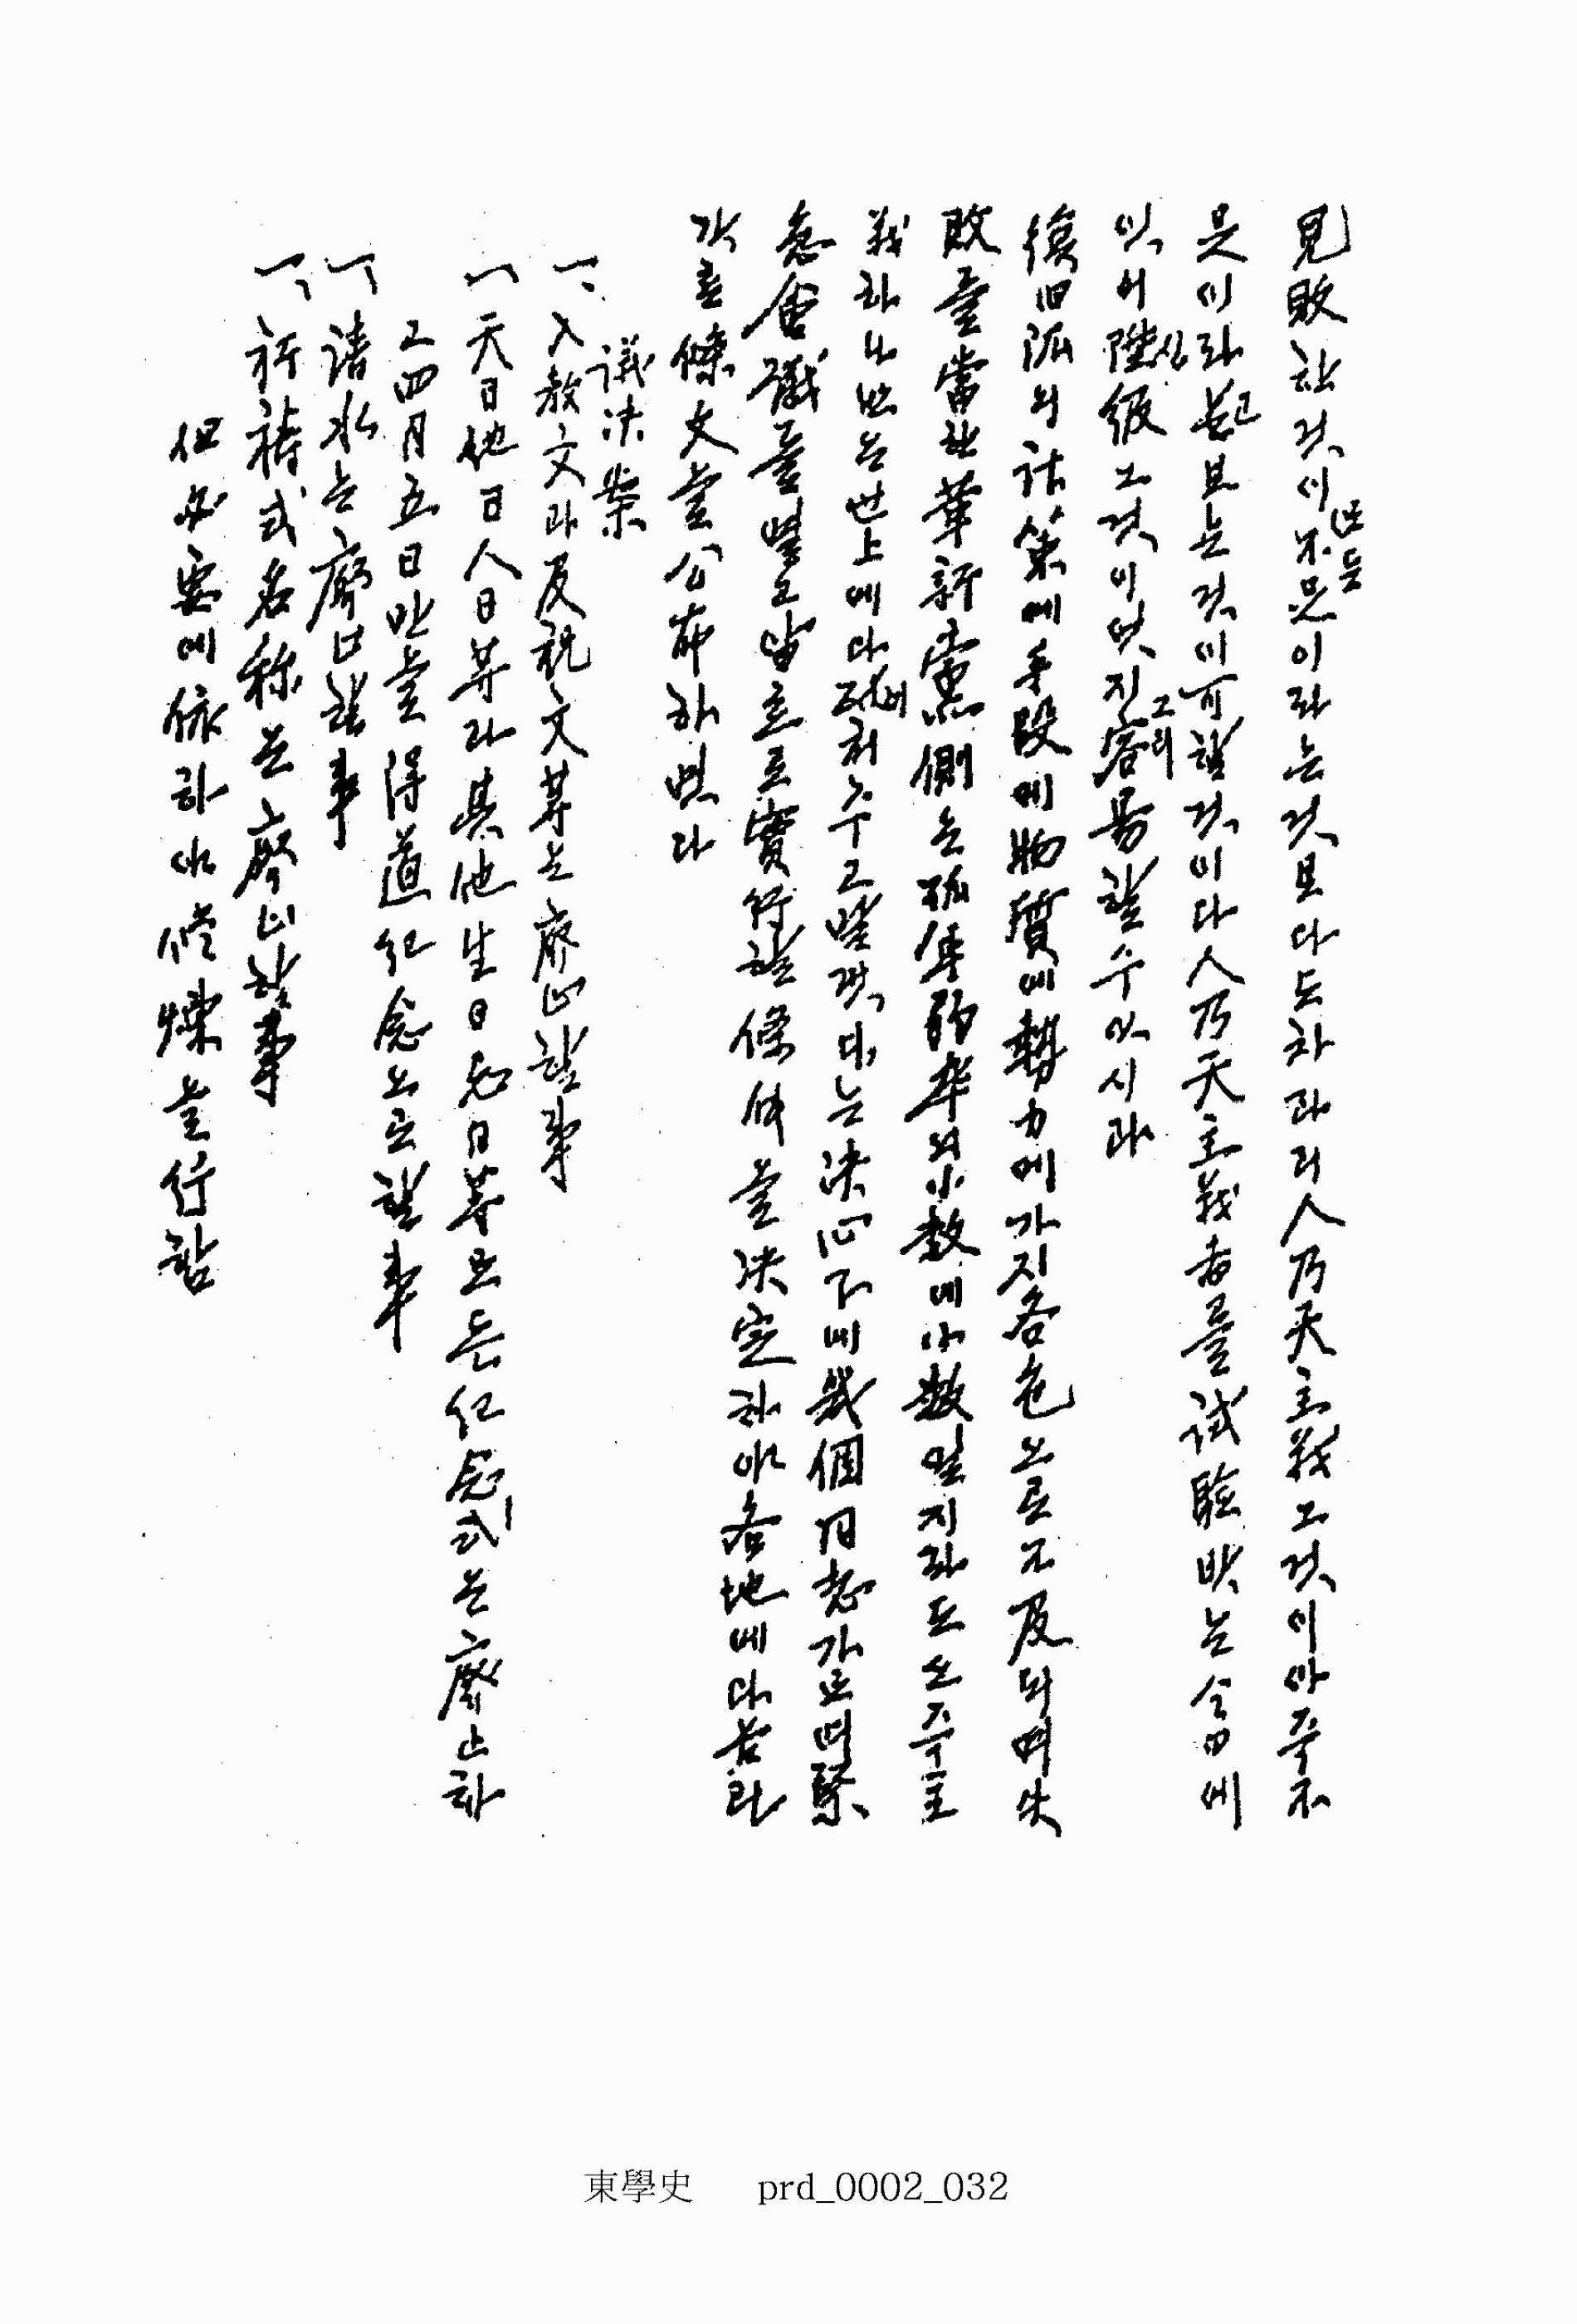 見敗한것이 不是이라는것보다도차라리人乃天主義그것이아주不
또는
是이라 보는것이可할것이다人乃天主義者를試驗밧는今日에
잇서 階級그것이엇지 容易할수잇시랴
그리
復旧派의諸策에手段에物質에勢力에가지各色으로不及되며失
敗를當한革新黨側은孤軍弱卒의小數에小數일지라도또主
義하나만은世上에다 처주고말겟다는決心下에幾個同志가모여緊
急會議를열고當場으로實行할條件을決定하야各地에다
가左條文을公布하엿다
議決案
一、入教文과及祝文等은廢止할事
一 天日地日人日等과其他生日忌日等모든紀念式은廢止하
고四月五日만을得道紀念으로할事
一 淸水는廢止할事
一、祈禱式名称은廢止할事
但必要에依하야修煉을行함
東學史 prd_0002_032